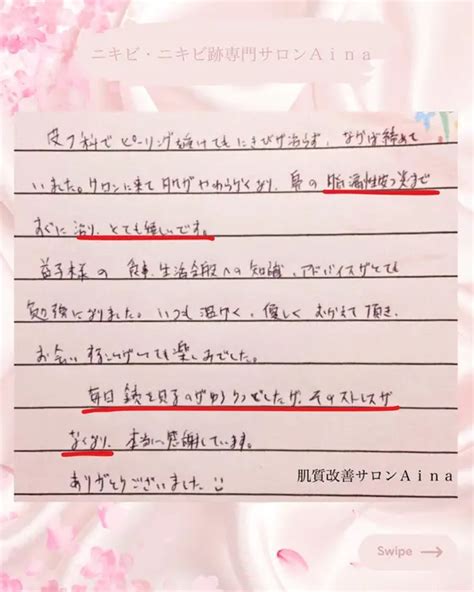 ニキビ・ニキビ跡専門サロンAina
皮フ科でピーリングを受けてもにきびが治らず、なかば諦めて
いました。サロンに来て肌がやわらかくなり、鼻の脂漏性皮フ炎まで
すぐに治り、とても嬉しいです。
益子様の食事、生活全般への知識、アドバイスがとても
勉強になりました。いつも温かく、優しくむかえて頂き、
お会いするのがとても楽しみでした。
毎日鏡を見るのがゆううつでしたが、そのストレスが
なくなり、本当に感謝しています。
ありがとうございました
肌質改善サロンAina
Swipe